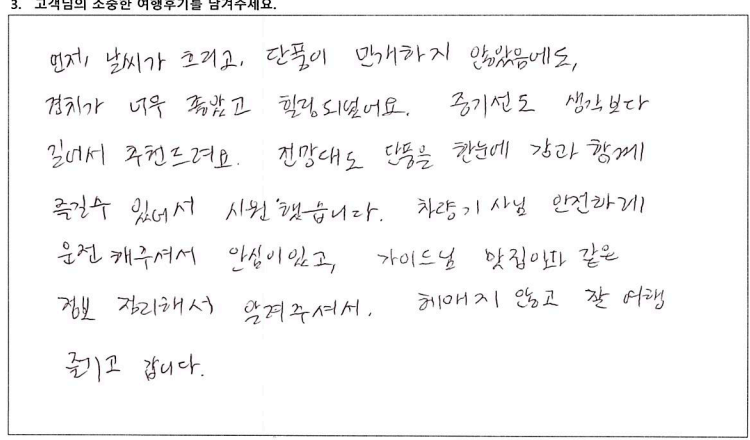 3. 고객님의 소중한 여행후기를 남겨주세요.
먼저, 날씨가 흐리고, 단풍이 만개하지 않았음에도,
경치가 너무 좋았고 힐링되었어요. 증기선도 생각보다
길어서 추천드려요. 전망대도 단풍을 한눈에 강과 함께
즐길수 있어서 시원했습니다. 차량기사님 안전하게
운전해주셔서 안심이었고, 가이드님 맛집이나 같은
정보 정리해서 알려주셔서. 헤매지 않고 잘 여행
즐기고 갑니다.